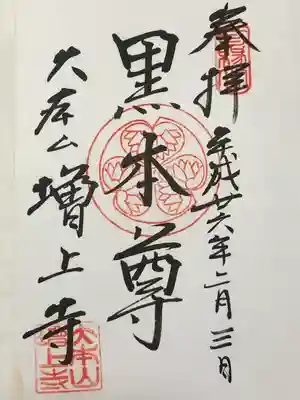 奉拝
平成廿六年二月三日
黒本尊
大本山増上寺
大本山
増上寺